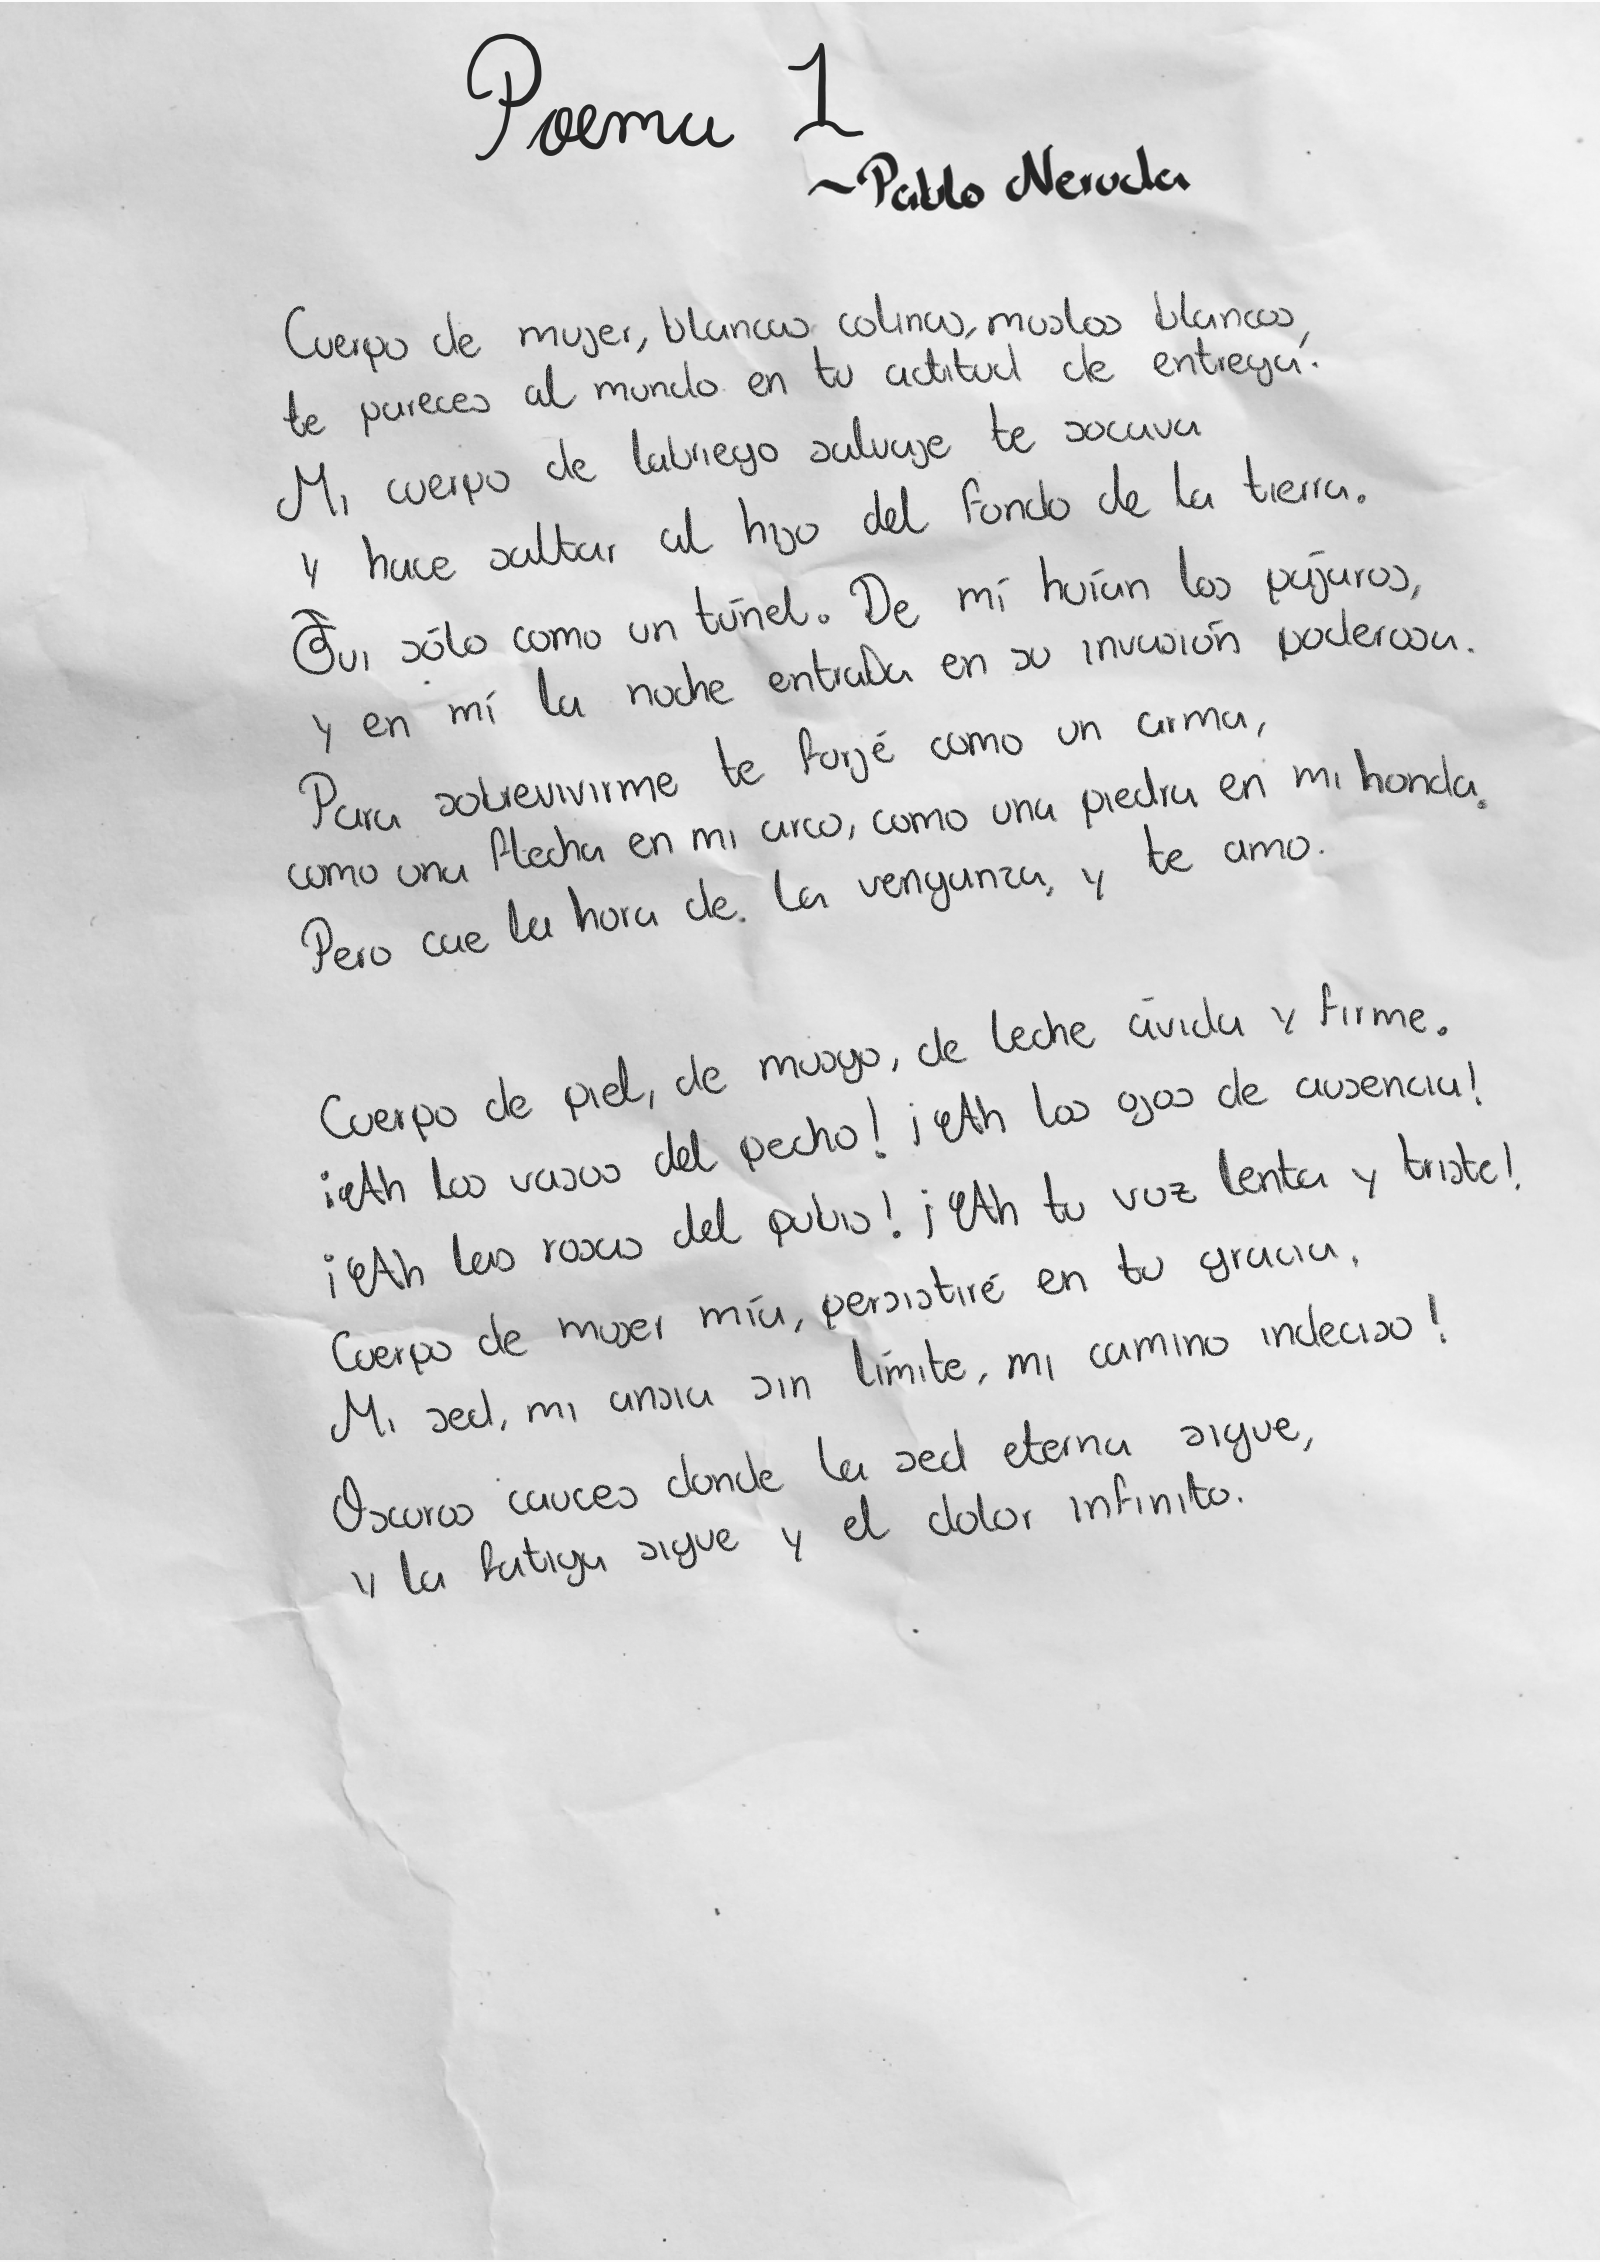 Poema 1
~Pablo Neruda
Cuerpo de mujer, blancas colinas, muslos blancos,
te pareces al mundo en tu actitud de entrega.
Mi cuerpo de labriego salvaje te socava
y hace saltar al hijo del fondo de la tierra.
Fui sólo como un túnel. De mí huían los pájaros,
y en mí la noche entraba en su invasión poderosa.
Para sobrevivirme te forjé como un arma,
como una flecha en mi arco, como una piedra en mi honda.
Pero cae la hora de la venganza, y te amo.
Cuerpo de piel, de musgo, de leche ávida y firme.
¡Ah los vasos del pecho! ¡Ah los ojos de ausencia!
¡Ah las rosas del pubis! ¡Ah tu voz lenta y triste!
Cuerpo de mujer mía, persistiré en tu gracia.
Mi sed, mi ansia sin límite, mi camino indeciso!
Oscuros cauces donde la sed eterna sigue,
y la fatiga sigue y el dolor infinito.